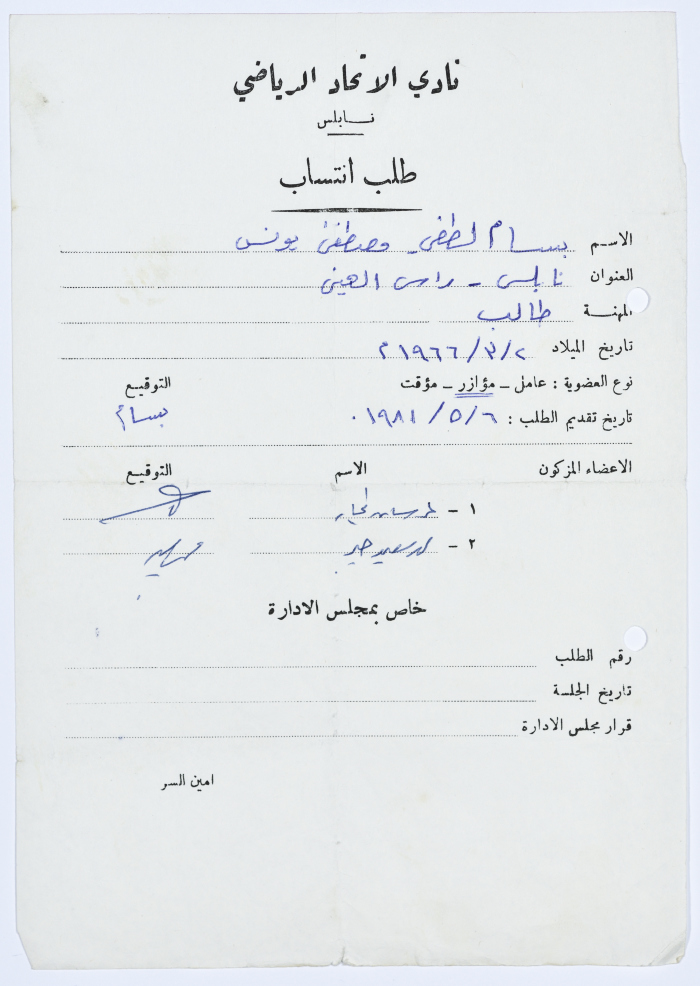 نادي الاتحاد الرياضي
نابلس
طلب انتساب
الاسم بسام لطفي مصطفى يونس
العنوان نابلس - راس العين
المهنة طالب
تاريخ الميلاد ٢/٣/١٩٦٦م
نوع العضوية : عامل - مؤازر - مؤقت التوقيع
تاريخ تقديم الطلب : ٦/٥/١٩٨١. بسام
الاعضاء المزكون الاسم التوقيع
١ -
٢ -
خاص بمجلس الادارة
رقم الطلب
تاريخ الجلسة
قرار مجلس الادارة
امين السر